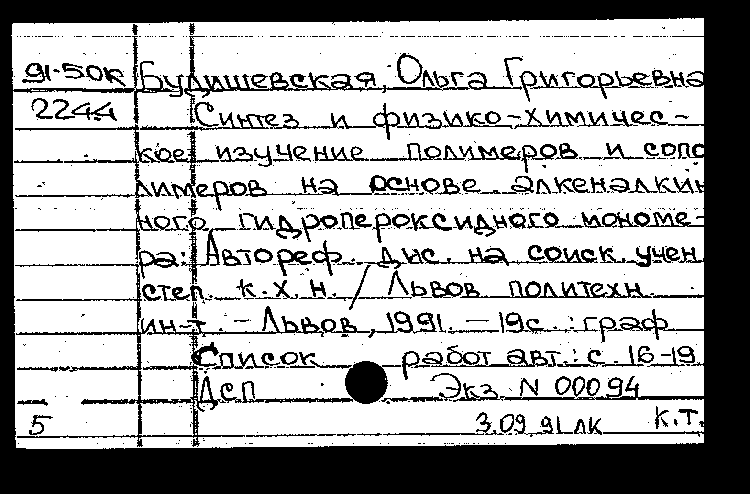 91-50к Будишевская, Ольга Григорьевна
2244 Синтез и физико-химичес-
кое изучение полимеров и сопо
лимеров на основе алкеналкин
ного гидропероксидного мономе-
ра: Автореф. дис. на соиск. учен
степ. к.х.н. / Львов политехн.
ин-т. - Львов, 1991. - 19с.: граф
Список работ авт.: с. 16-19
ДСП Экз. N 00094
5 3.09 91 ЛК к.т.